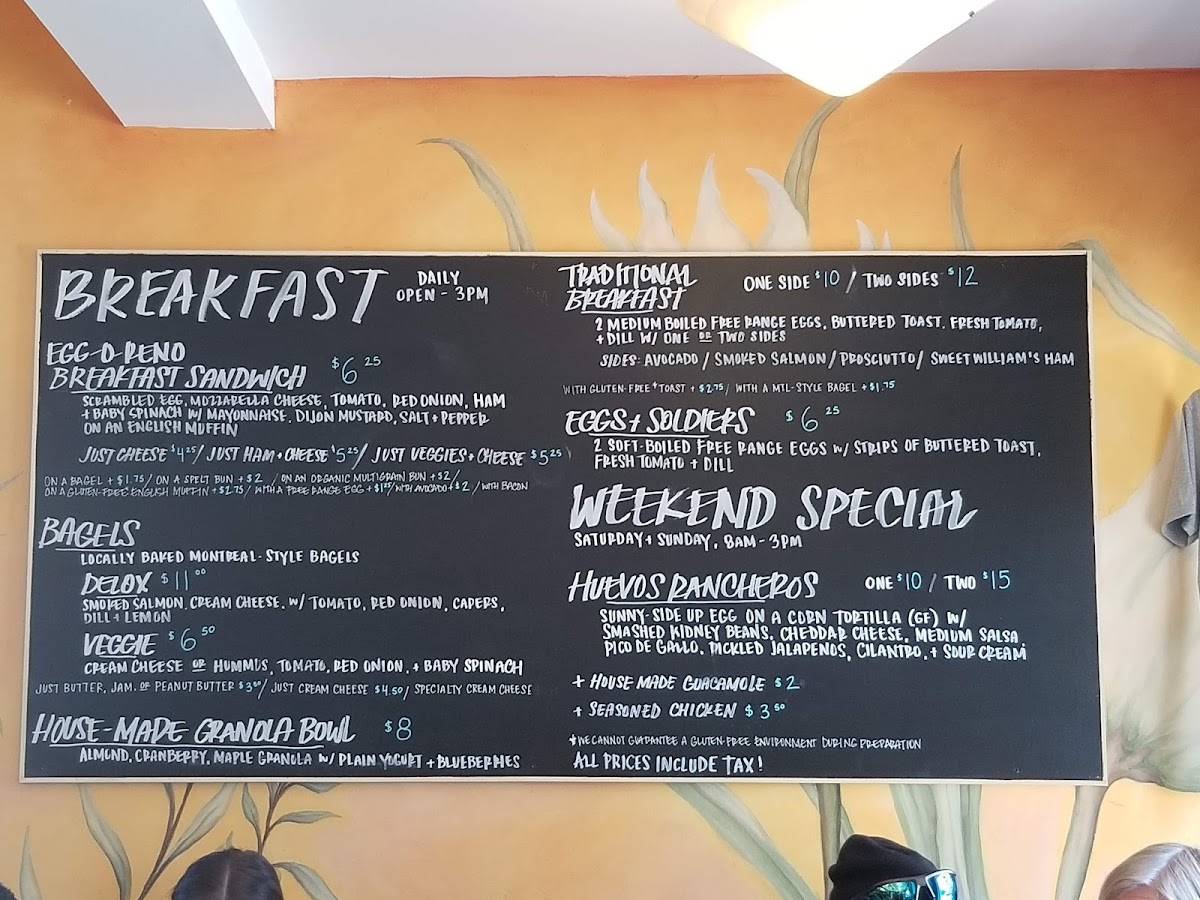 BREAKFAST
DAILY
OPEN - 3PM
EGG-O-RENO
BREAKFAST SANDWICH $6 25
SCRAMBLED EGG, MOZZARELLA CHEESE, TOMATO, RED ONION, HAM
+ BABY SPINACH W/ MAYONNAISE, DIJON MUSTARD, SALT + PEPPER
ON AN ENGLISH MUFFIN
JUST CHEESE $4 25/ JUST HAM + CHEESE $5 25/ JUST VEGGIES + CHEESE $5 25
ON A BAGEL + $1.75/ ON A SPELT BUN + $2 / ON AN ORGANIC MULTIGRAIN BUN + $2/
ON A GLUTEN-FREE ENGLISH MUFFIN + $2.75/ WITH A FREE RANGE EGG + $1 25/ WITH AVOCADO + $2 / WITH BACON
BAGELS
LOCALLY BAKED MONTREAL-STYLE BAGELS
DELOX $11 00
SMOKED SALMON, CREAM CHEESE, W/ TOMATO, RED ONION, CAPERS,
DILL + LEMON
VEGGIE $6 50
CREAM CHEESE OR HUMMUS, TOMATO, RED ONION, + BABY SPINACH
JUST BUTTER, JAM, OR PEANUT BUTTER $3 50/ JUST CREAM CHEESE $4.50/ SPECIALTY CREAM CHEESE
HOUSE-MADE GRANOLA BOWL $8
ALMOND, CRANBERRY, MAPLE GRANOLA W/ PLAIN YOGURT + BLUEBERRIES
TRADITIONAL
BREAKFAST
ONE SIDE $10 / TWO SIDES $12
2 MEDIUM BOILED FREE RANGE EGGS, BUTTERED TOAST, FRESH TOMATO,
+ DILL W/ ONE OR TWO SIDES
SIDES: AVOCADO / SMOKED SALMON / PROSCIUTTO / SWEET WILLIAM'S HAM
WITH GLUTEN-FREE + TOAST + $2.75/ WITH A MTL-STYLE BAGEL + $1.75
EGGS + SOLDIERS $6 25
2 SOFT-BOILED FREE RANGE EGGS W/ STRIPS OF BUTTERED TOAST,
FRESH TOMATO + DILL
WEEKEND SPECIAL
SATURDAY + SUNDAY, 8AM - 3PM
HUEVOS RANCHEROS ONE $10 / TWO $15
SUNNY-SIDE UP EGG ON A CORN TORTILLA (GF) W/
SMASHED KIDNEY BEANS, CHEDDAR CHEESE, MEDIUM SALSA,
PICO DE GALLO, PICKLED JALAPENOS, CILANTRO, + SOUR CREAM
+ HOUSE MADE GUACAMOLE $2
+ SEASONED CHICKEN $3 50
+ WE CANNOT GUARANTEE A GLUTEN-FREE ENVIRONMENT DURING PREPARATION
ALL PRICES INCLUDE TAX!